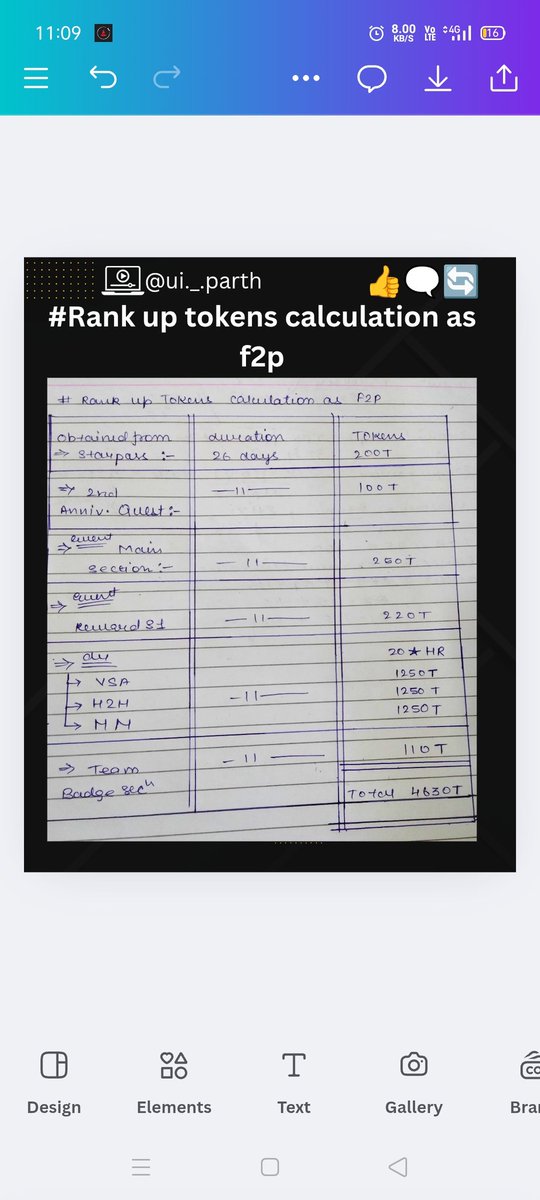 11:09
8.00
KB/S
Vo
LTE
4G
16
@ui._.parth
#Rank up tokens calculation as
f2p
# Rank up Tokens calculation as F2P
obtained from duration Tokens
⇒ Starpass :- 26 days 200T
⇒ 2nd —11— 100T
Anniv. Quest:-
⇒ event Main
section:- —11— 250T
⇒ event
Reward S1 —11— 220T
⇒ 20★HR
↳ VSA 1250T
↳ H2H -11— 1250T
↳ MM 1250T
⇒ Team -11— 110T
Badge secn
Total 4630T
Design
Elements
Text
Gallery
Bra